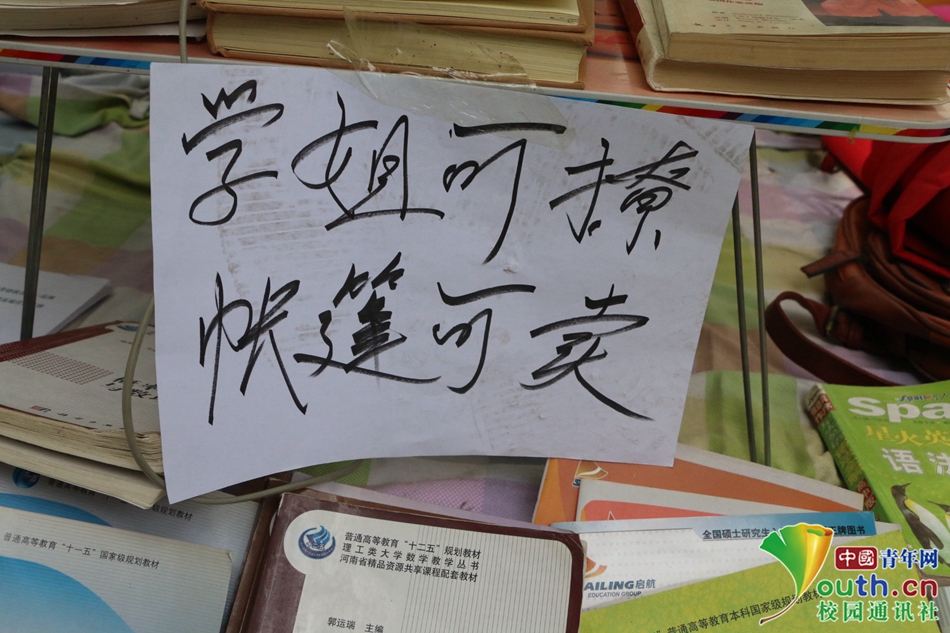 学姐可撩
帐篷可卖
Spa
星火英
语法
普通高等教育“十一五”国家级规划教材
规划教材
普通高等教育“十二五”规划教材
理工类大学数学教学丛书
河南省精品资源共享课程配套教材
郭运瑞 主编
全国硕士研究生
牌图书
AILING启航
EDUCATION GROUP
普通高等教育本科国家级规划教材
中國青年网
outh.cn
校园通讯社